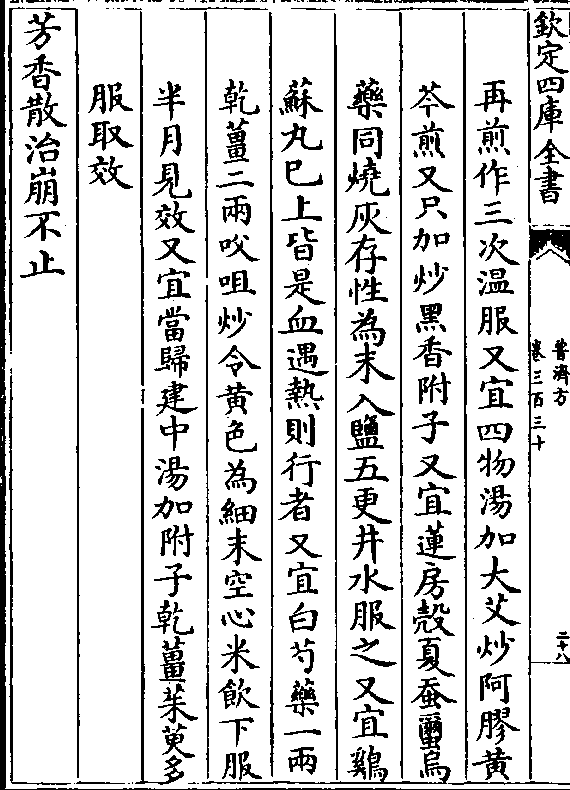 欽定四庫全書
普濟方
卷三百三十
二十八
再煎作三次温服又宜四物湯加大艾炒阿膠黄
芩煎又只加炒黑香附子又宜蓮房殼夏蚕䘎烏
藥同燒灰存性為末入鹽五更井水服之又宜鷄
蘇丸巳上皆是血遇熱則行者又宜白芍藥一兩
乾薑二兩㕮咀炒令黄色為細末空心米飲下服
半月見效又宜當歸建中湯加附子乾薑茱萸多
服取效
芳香散治崩不止